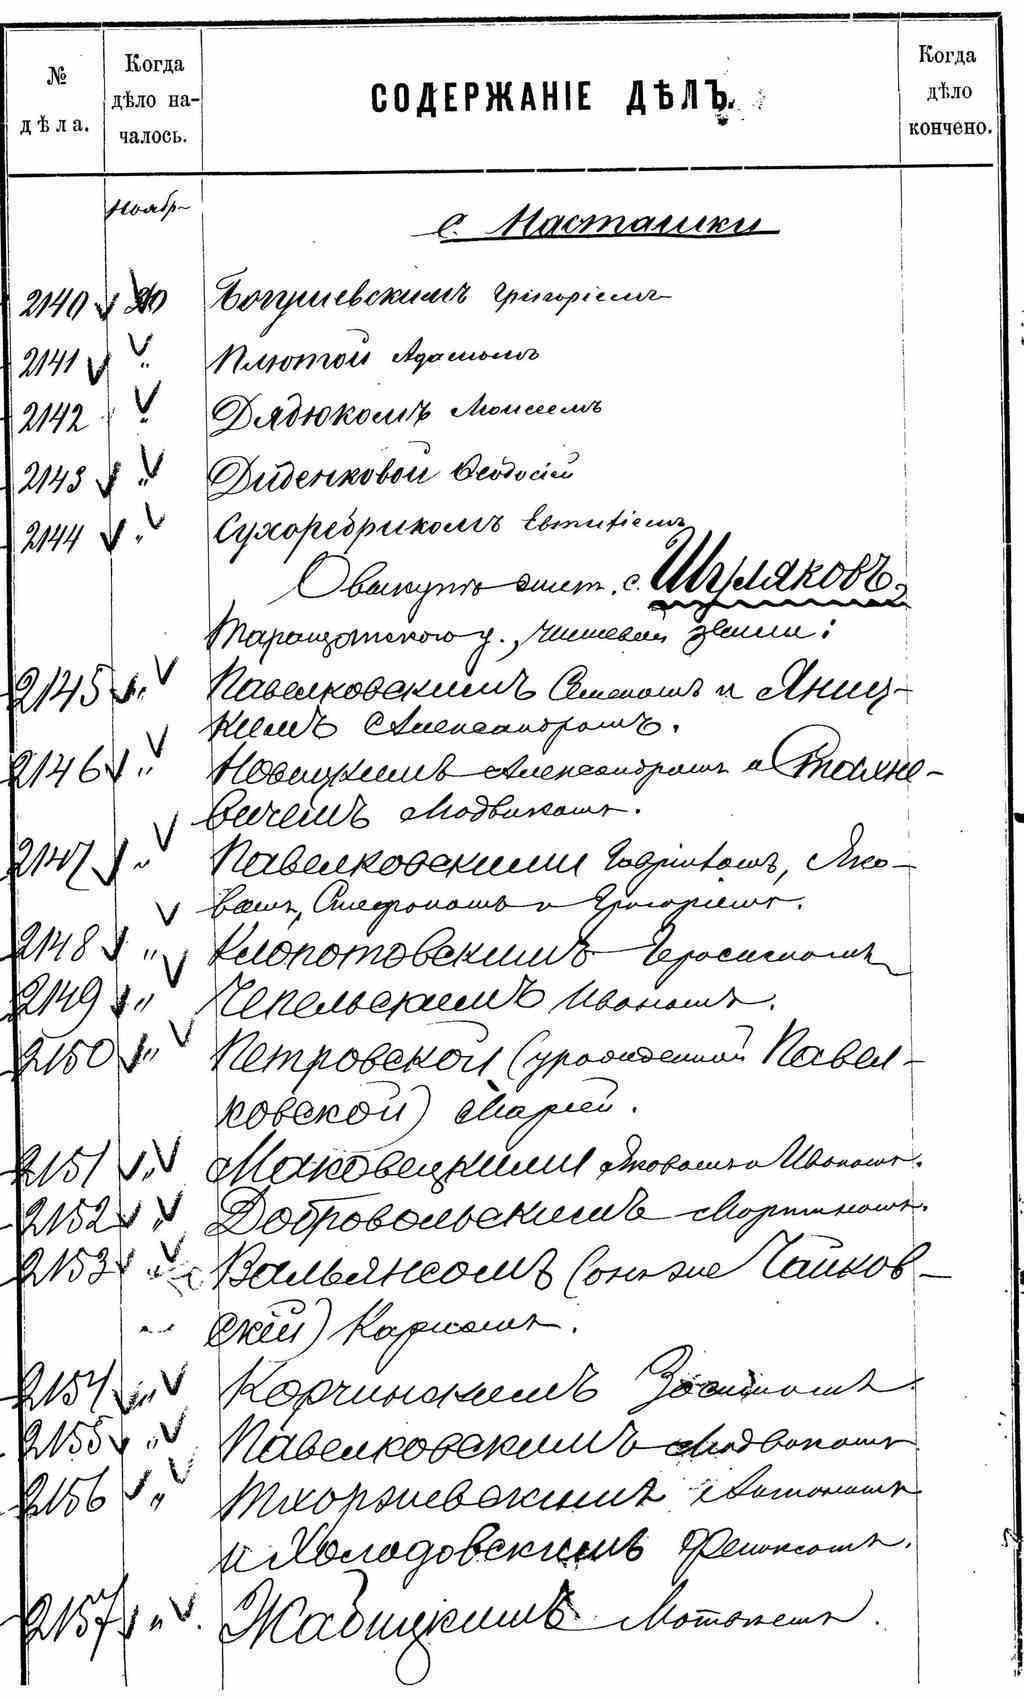 № дѣла. Когда дѣло началось. СОДЕРЖАНІЕ ДѢЛЪ. Когда дѣло кончено.
Ноябр
с. Насташки
2140 20 Богушевскимъ Григоріемъ
2141 " Плютой Адамомъ
2142 " Дядюкомъ Моисеемъ
2143 " Диденковой Ѳеодосіей
2144 " Сухоребрикомъ Евтихіемъ
О выкупѣ с. Шуляковъ,
Таращанскаго у., чиншевой земли:
2145 " Павелковскимъ Семеномъ и Яниц-
кимъ Александромъ.
2146 " Новицкимъ Александромъ и Стахне-
вичемъ Людвикомъ.
2147 " Павелковскими Яко-
вомъ, Стефаномъ и Григоріемъ.
2148 " Клопотовскимъ Герасимомъ
2149 " Чепельскимъ Иваномъ.
2150 " Петровской (урожденной Павел-
ковской) Маріей.
2151 " Маковецкими Яковомъ и Иваномъ.
2152 " Добровольскимъ Мартиномъ.
2153 " Вальянсомъ (онъ же Чайков-
скій) Карломъ.
2154 " Корчинскимъ Зосимомъ.
2155 " Павелковскимъ Людвикомъ
2156 " Тхоржевскимъ Антономъ
и Холодовскимъ Феликсомъ.
2157 " Жабицкимъ